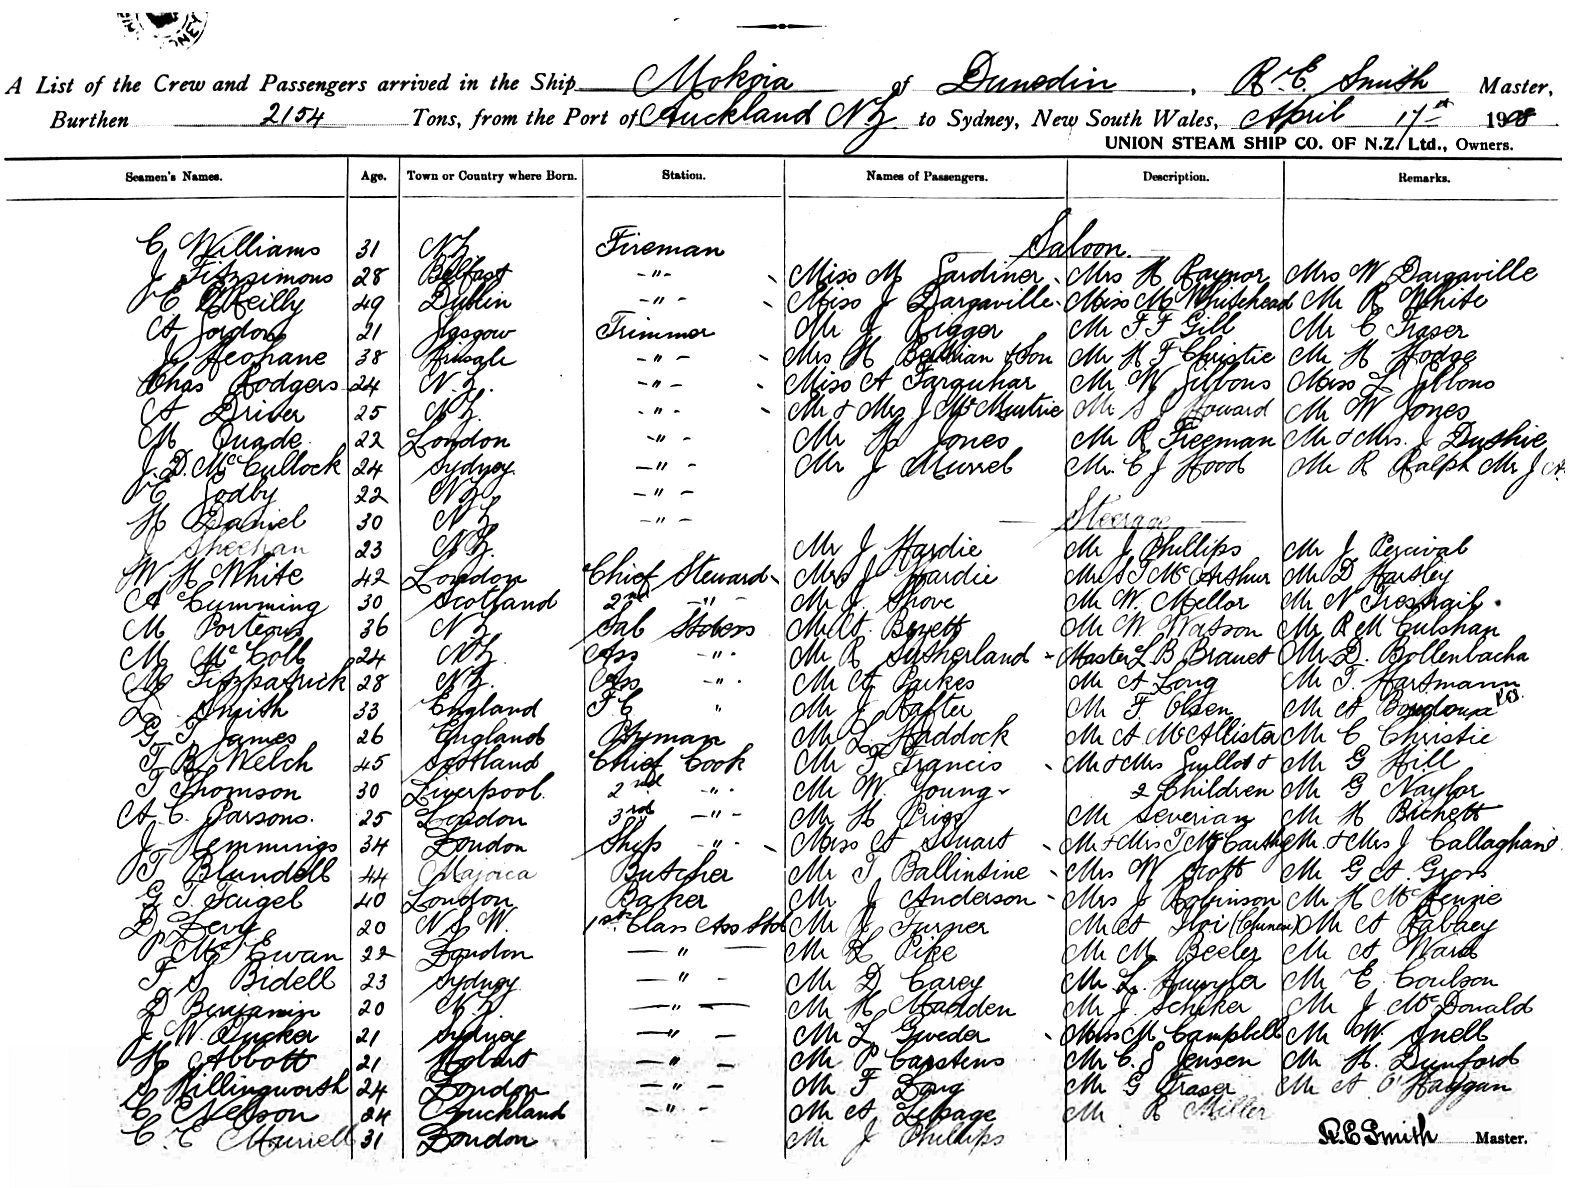 A List of the Crew and Passengers arrived in the Ship Mokoia of Dunedin, R. E. Smith Master,
Burthen 2154 Tons, from the Port of Auckland NZ to Sydney, New South Wales, April 17th 1908
UNION STEAM SHIP CO. OF N.Z. Ltd., Owners.
Seamen's Names. Age. Town or Country where Born. Station. Names of Passengers. Description. Remarks.
Saloon.
C Williams 31 NZ Fireman
J Fitzsimons 28 Belfast -"- Miss M Gardiner Mrs H Raynor Mrs W Dargaville
E O'Reilly 49 Dublin -"- Miss J Dargaville Miss M Whitehead Mr R White
A Gordon 21 Glasgow Trimmer Mr J Rigger Mr F F Gill Mr C Fraser
J Heophane 38 -"- Mrs H & Son Mr H F Christie Mr H Hodge
Chas Rodgers 24 N.Z. -"- Miss A Farquhar Mr W Gibbons Miss L Gibbons
A Driver 25 NZ. -"- Mr & Mrs J McMurtrie Mr S J Howard Mr W Jones
M Quade 22 London -"- Mr H Jones Mr R Freeman Mr & Mrs J
J. D. McCullock 24 Sydney -"- Mr J Murrel Mr C J Hood Mr R Ralph Mr J
E Godby 22 NZ -"-
H Daniel 30 NZ -"- Steerage
J Sheehan 23 NZ. Mr J Hardie Mr J Phillips Mr J Percival
W H White 42 London Chief Steward Mrs J Hardie Mr S T McArthur Mr D Harsley
A Cumming 30 Scotland 2nd -"- Mr J Shove Mr W. Mellor Mr N
M Porteous 36 NZ Sal Mr A Mr W Watson Mr R M Culshan
M McColl 24 NZ. Ass " Mr R Sutherland Master L B Brauet Mr D. Bollenbacha
M Fitzpatrick 28 NZ. Ass " Mr A Parkes Mr A Long Mr F. Hartmann
L Smith 33 England F C " Mr J Rafter Mr F. Olsen Mr A
G T James 26 England Pyman Mr L Haddock Mr A McAllister Mr C Christie
T B Welch 45 Scotland Chief Cook Mr F Francis Mr & Mrs Guillot & Mr G Hill
T Thomson 30 Liverpool. 2nd -"- Mr W. Young 2 Children Mr G Naylor
A. C. Parsons. 25 London 3rd -"- Mr H Prigg Mr Severian Mr H Bickett
J Hemmings 34 London Ships -"- Miss A Stuart Mr & Mrs T McCarthy Mr & Mrs J Callaghan
T Blundell 44 Majorca Butcher Mr T Ballintine Mrs W Scott Mr G A Gross
G T. Faigel 40 London Baker Mr J Anderson Mrs J Robinson Mr H McKenzie
D Levy 20 N S W. 1st Class Ass Std Mr J Turner Mr A (Chinese) Mr A Rabbey
P McEwan 22 London -"- Mr R Pike Mr M. Beeler Mr A Ward
F S Bidell 23 Sydney -"- Mr D Carey Mr L. Huwyler Mr E. Coulson
D Benjamin 20 N.Z. -"- Mr H Madden Mr J. Schiker Mr J McDonald
J W Tucker 21 Sydney -"- Mr L Gweder Miss M Campbell Mr W Snell
H Abbott 21 Hobart -"- Mr P Carstens Mr C. S Jensen Mr H. Dunford
S Killingworth 24 London -"- Mr F Lang Mr G Fraser Mr A O'Haggan
C Nelson 24 Auckland -"- Mr A Lepage Mr R Miller
C. E Murrell 31 London Mr J Phillips
R. E Smith Master.